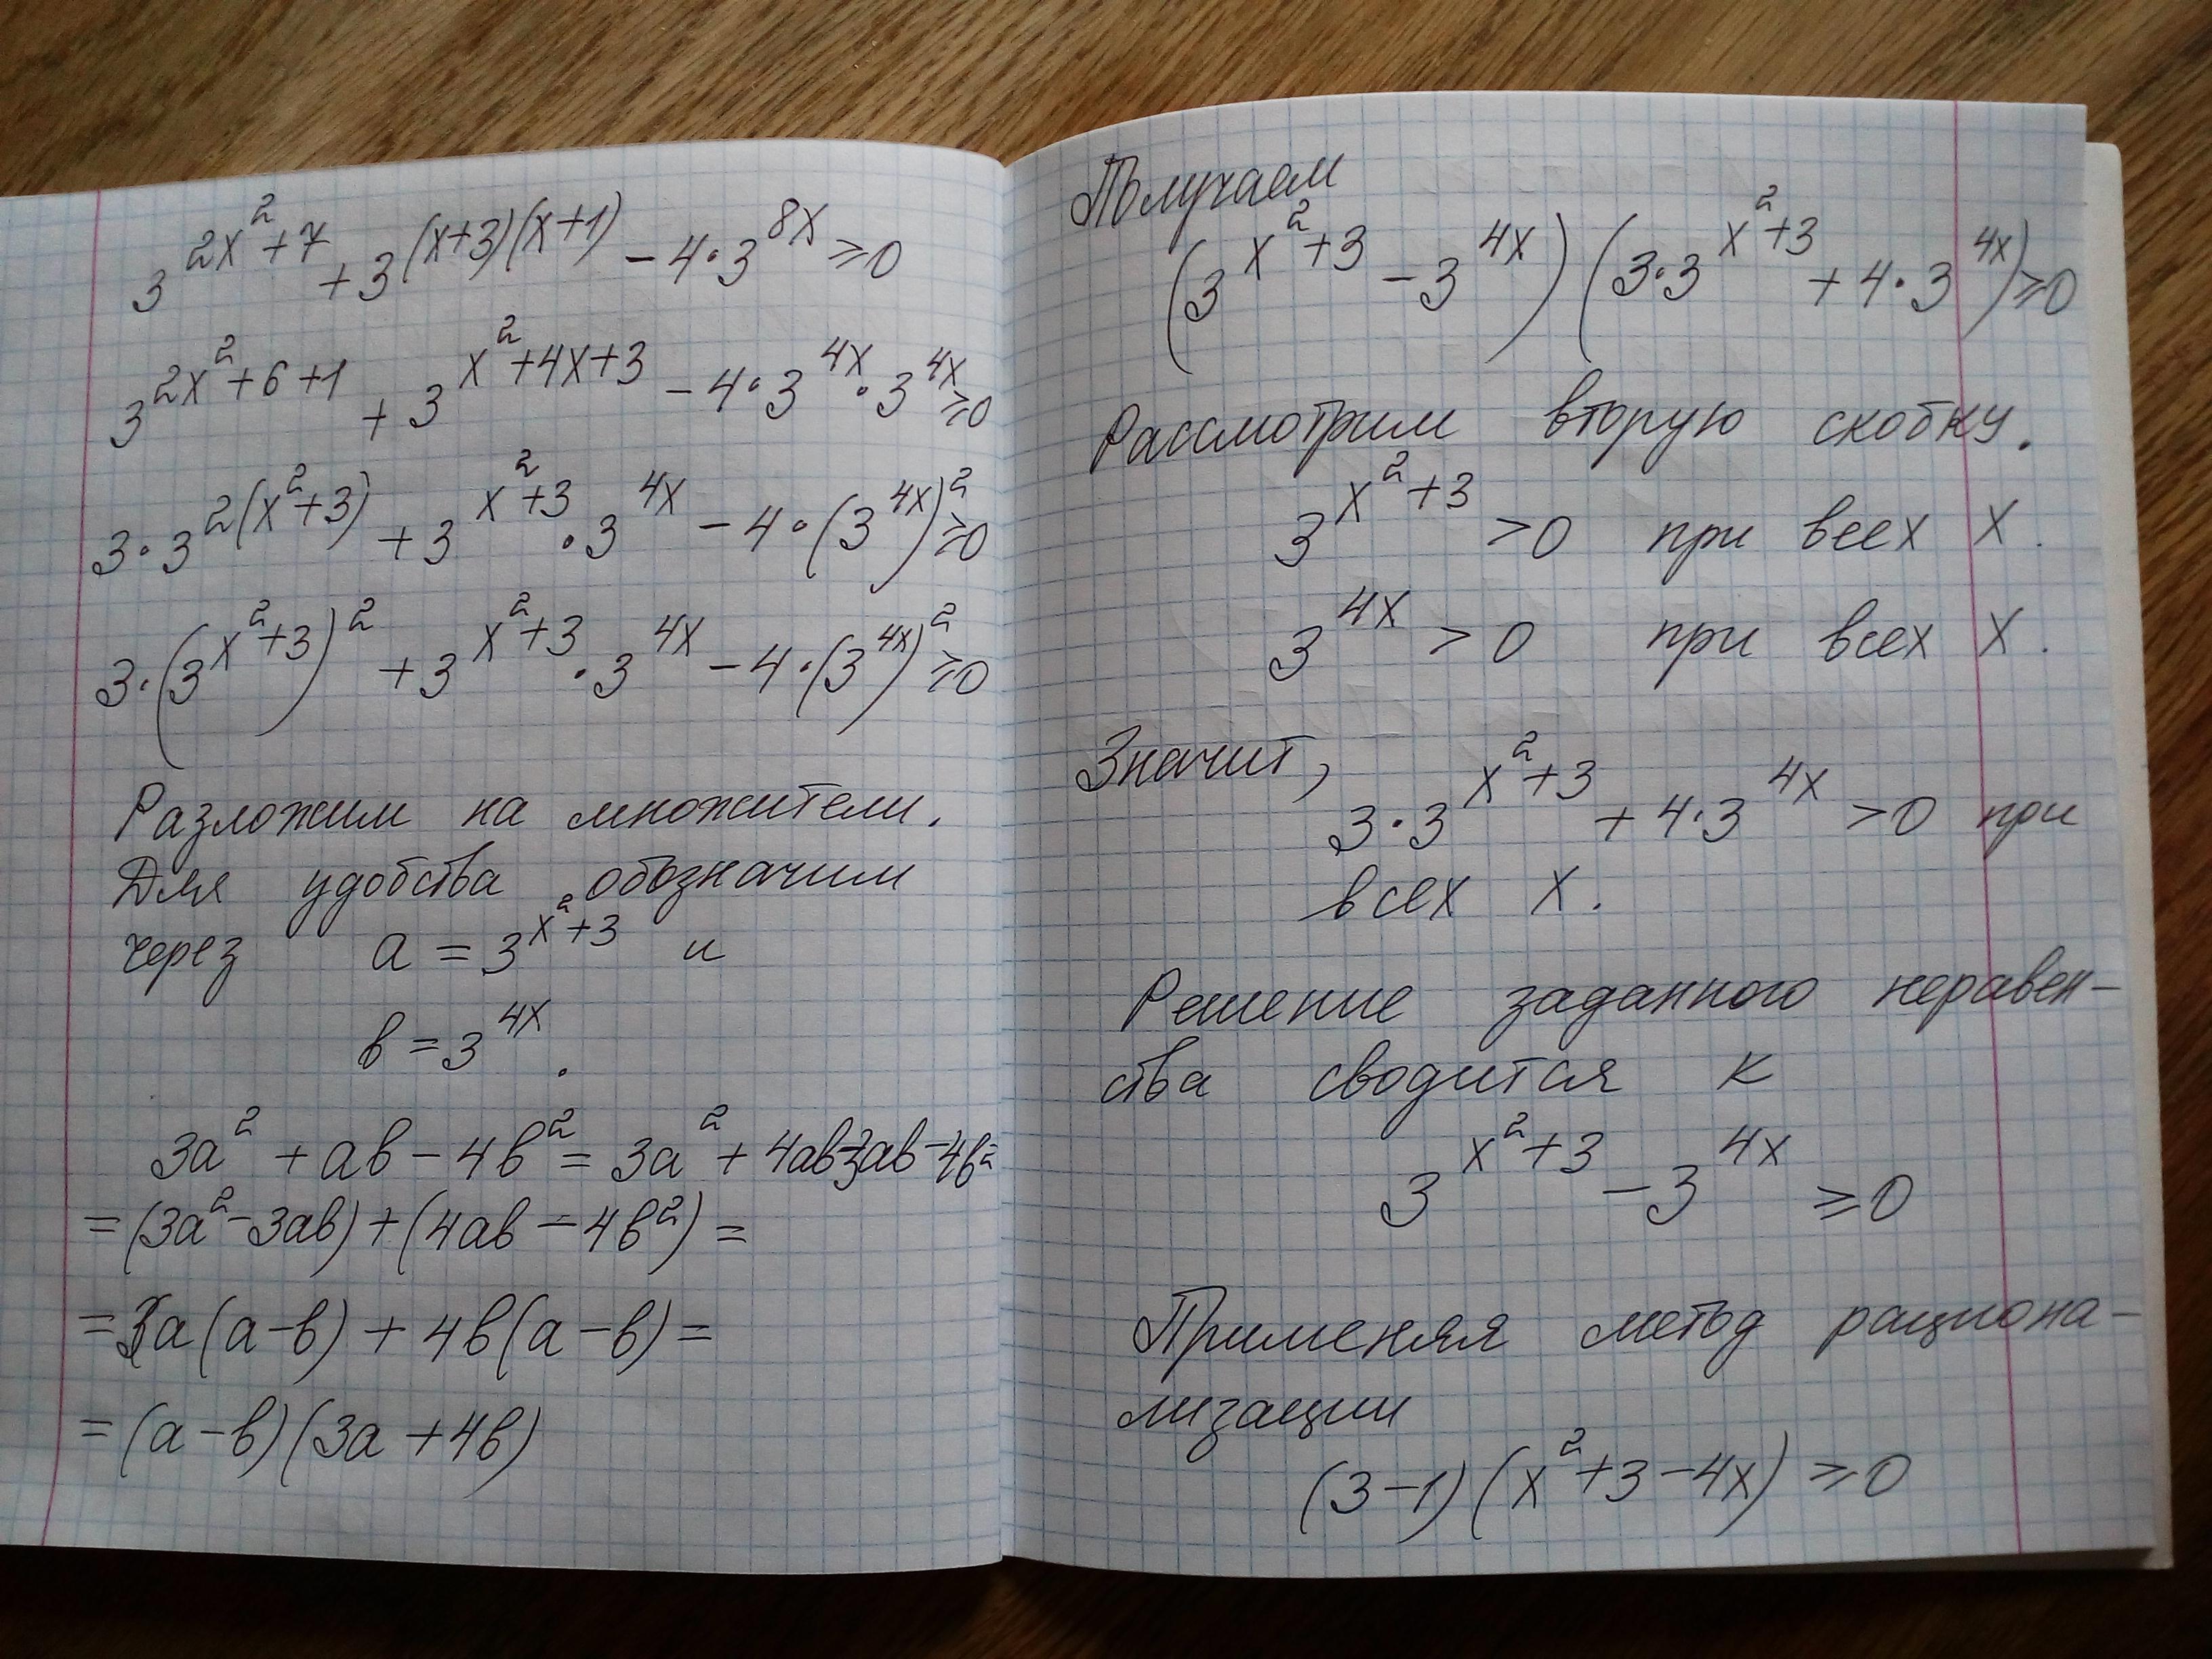 3^{2x²+7} + 3^{(x+3)(x+1)} - 4·3^{8x} ≥ 0
3^{2x²+6+1} + 3^{x²+4x+3} - 4·3^{4x}·3^{4x} ≥ 0
3·3^{2(x²+3)} + 3^{x²+3}·3^{4x} - 4·(3^{4x})² ≥ 0
3·(3^{x²+3})² + 3^{x²+3}·3^{4x} - 4·(3^{4x})² ≥ 0
Разложим на множители.
Для удобства обозначим
через a = 3^{x²+3} и
в = 3^{4x}.
3a² + aв - 4в² = 3a² + 4aв-3aв-4в²=
= (3a² - 3aв) + (4aв - 4в²) =
= 3a(a-в) + 4в(a-в) =
= (a-в)(3a+4в)
Получаем
(3^{x²+3} - 3^{4x})(3·3^{x²+3} + 4·3^{4x}) ≥ 0
Рассмотрим вторую скобку.
3^{x²+3} > 0 при всех x.
3^{4x} > 0 при всех x.
Значит,
3·3^{x²+3} + 4·3^{4x} > 0 при
всех x.
Решение заданного неравен-
ства сводится к
3^{x²+3} - 3^{4x} ≥ 0
Применяя метод рациона-
лизации
(3-1)(x²+3-4x) ≥ 0